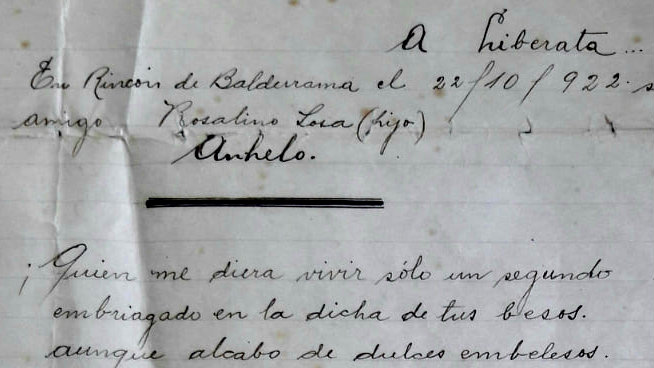 A Liberata...
En Rincón de Balderrama el 22/10/922. s
amigo Rosalino Sosa (hijo)
Anhelo.
¡Quien me diera vivir sólo un segundo
embriagado en la dicha de tus besos.
aunque alcabo de dulces embelesos.